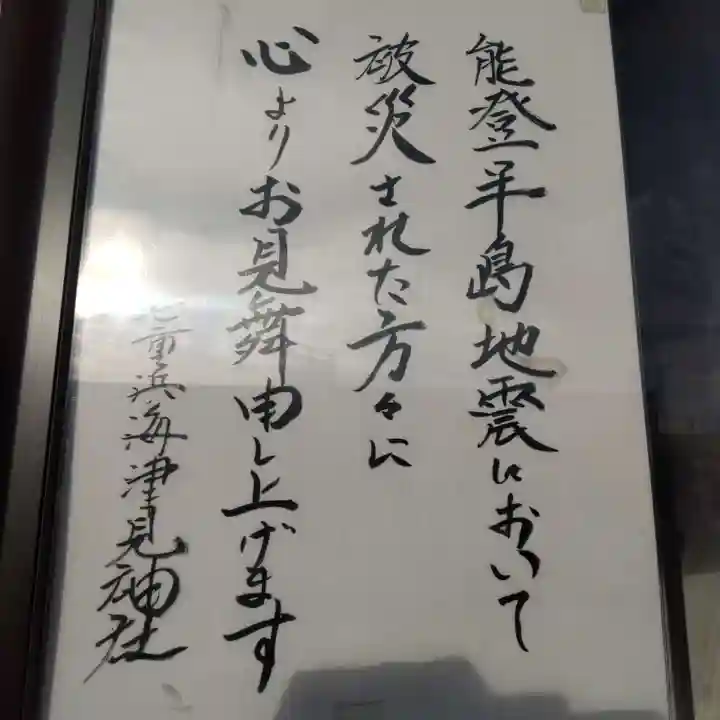 能登半島地震において
被災された方々に
心よりお見舞申し上げます
七重浜海津見神社